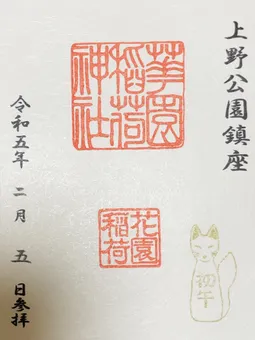 上野公園鎮座
華園稲荷神社
花園稲荷
初午
令和五年 二月 五 日参拝